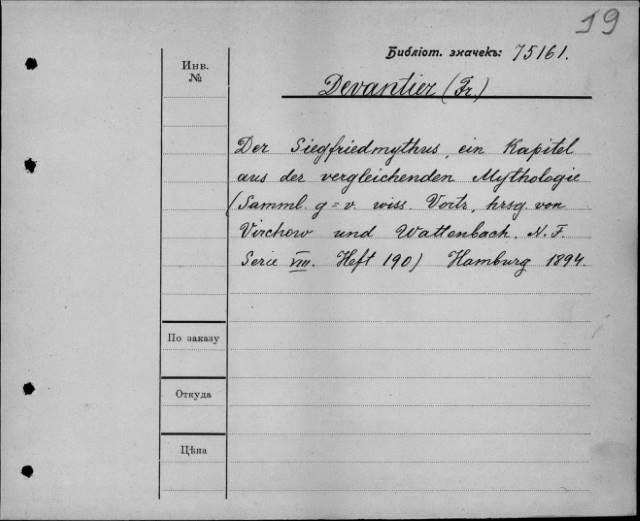 19
Библіот. значекъ: 75161.
Инв.
№
Devantier (Fr.)
Der Siegfriedmythus, ein Kapitel
aus der vergleichenden Mythologie
(Samml. g=v. wiss. Vortr., hrsg. von
Virchow und Wattenbach. N. F.
Serie VIII. Heft 190) Hamburg 1894.
По заказу
Откуда
Цѣна